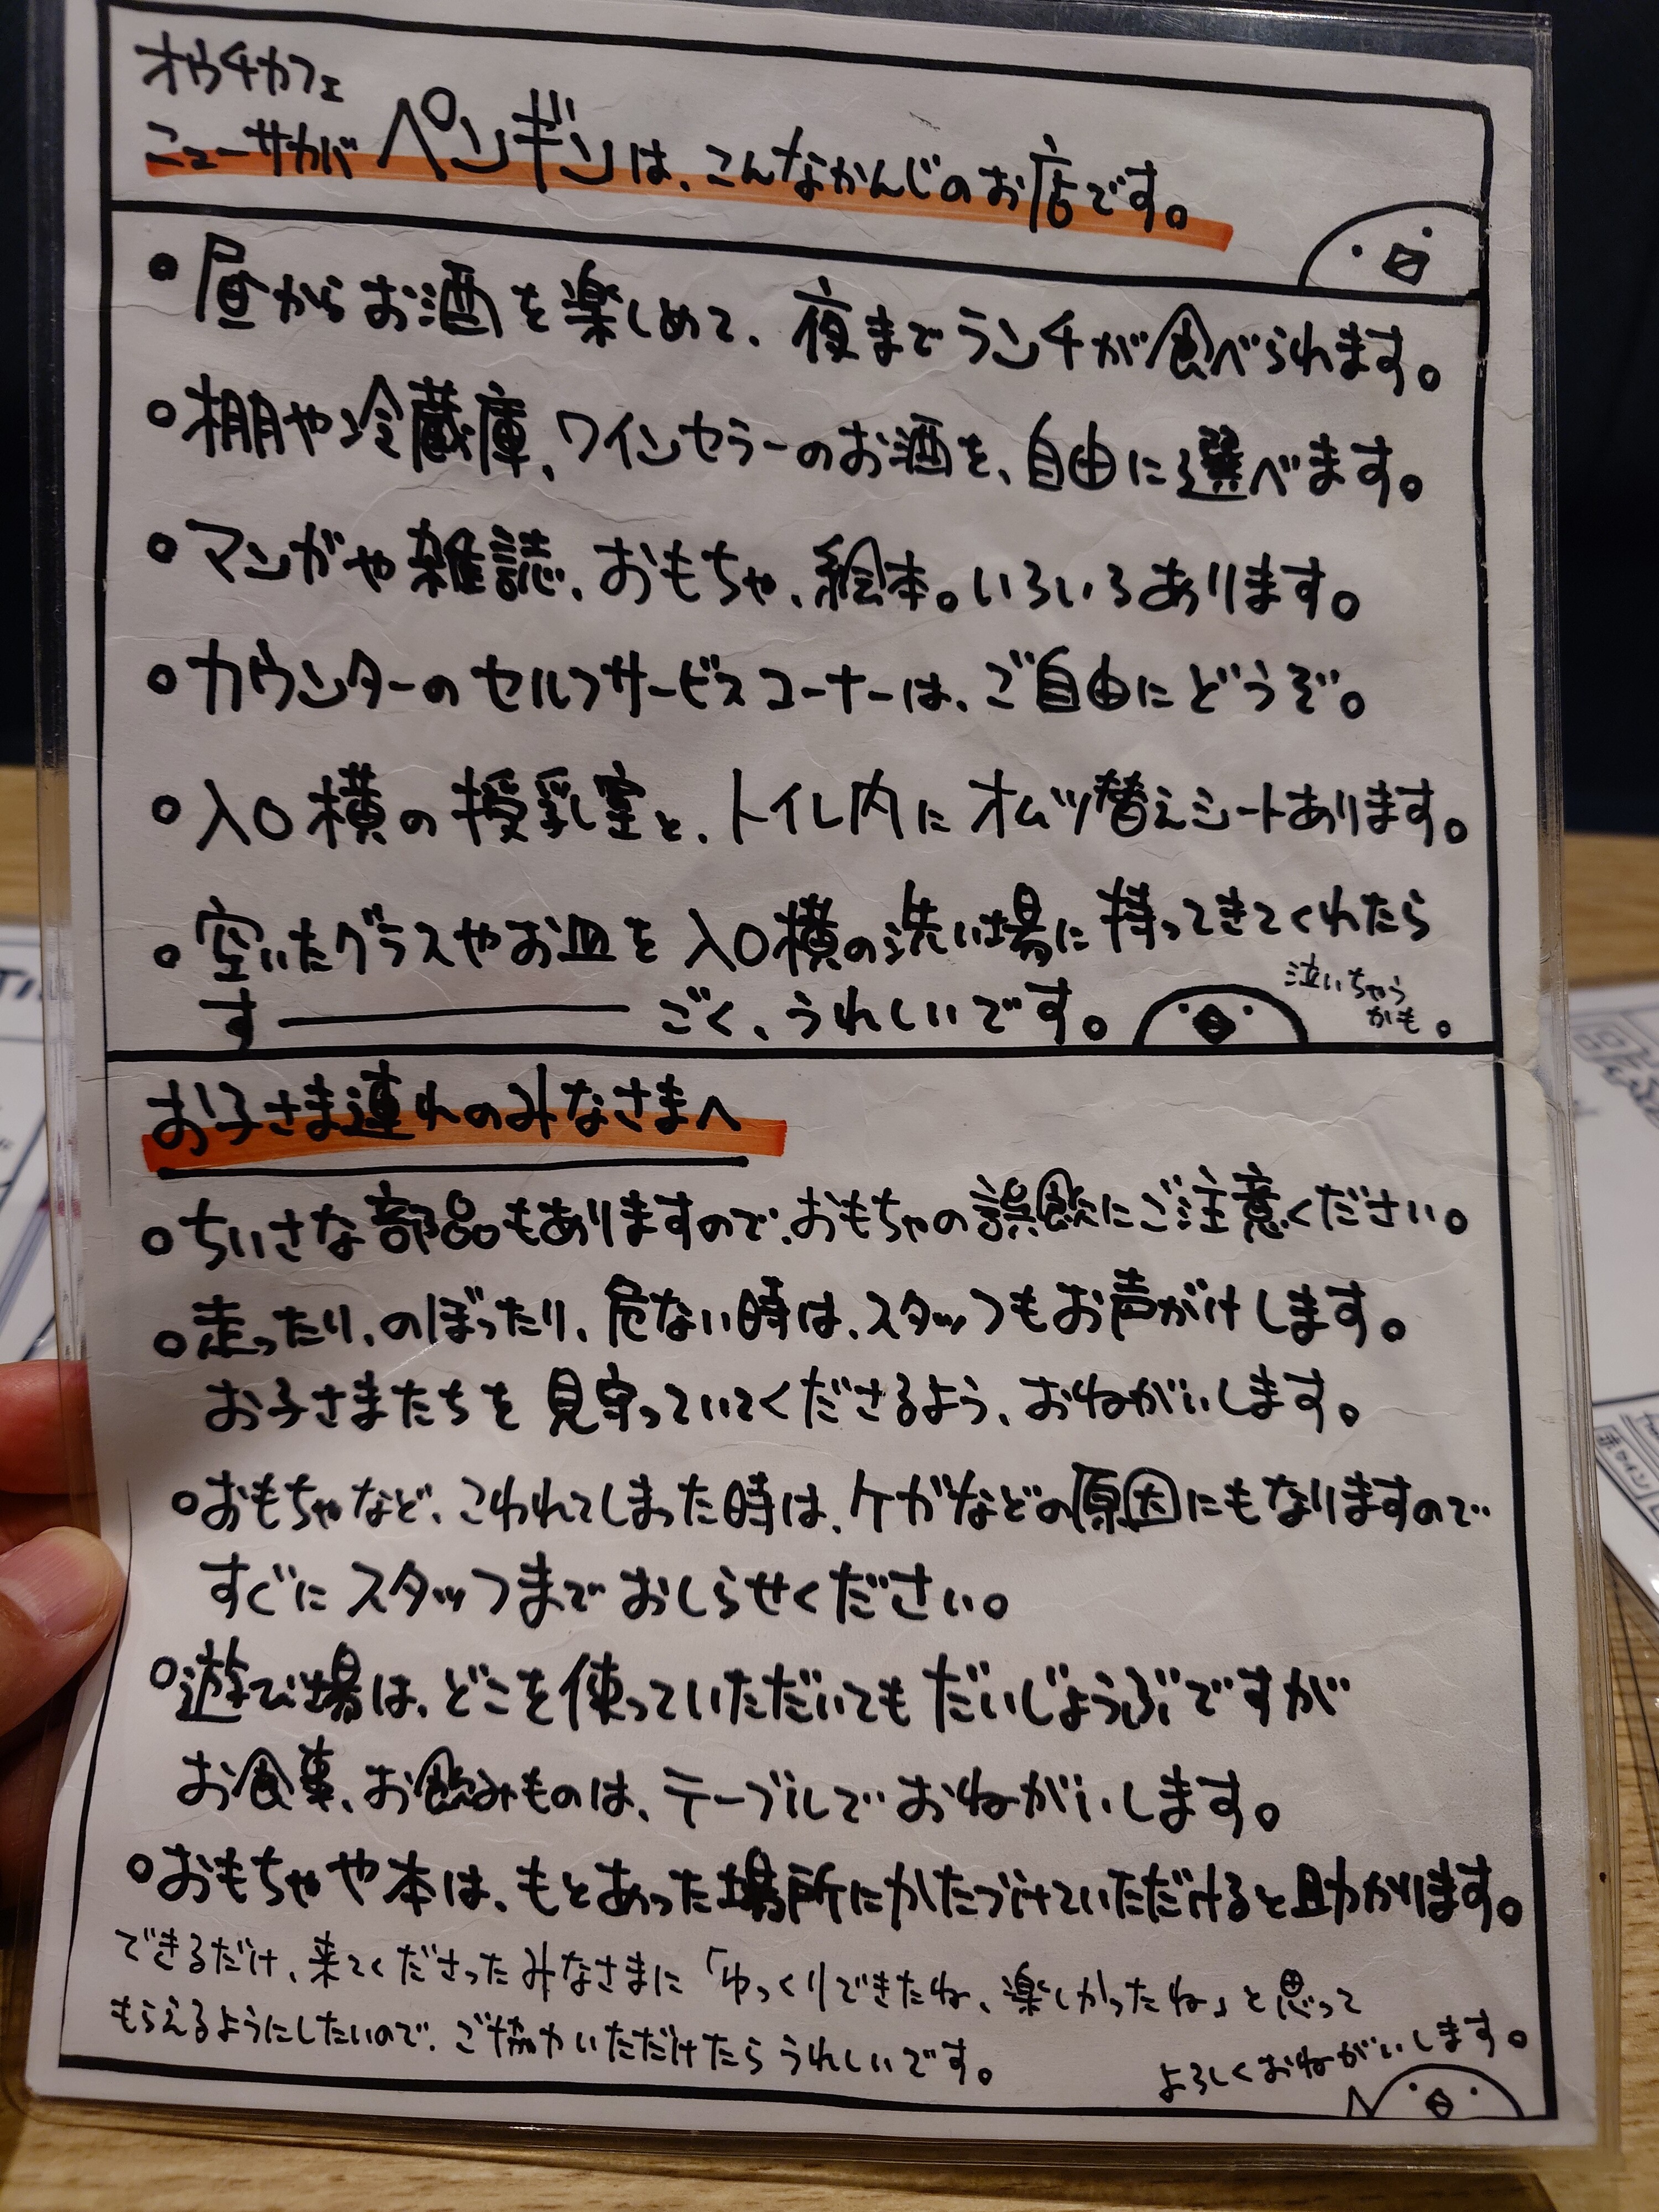 オウチカフェ
ニューサカバ ペンギンは、こんなかんじのお店です。
・昼からお酒を楽しめて、夜までランチが食べられます。
・棚や冷蔵庫、ワインセラーのお酒を、自由に選べます。
・マンガや雑誌、おもちゃ、絵本。いろいろあります。
・カウンターのセルフサービスコーナーは、ご自由にどうぞ。
・入口横の授乳室と、トイレ内にオムツ替えシートあります。
・空いたグラスやお皿を入口横の洗い場に持ってきてくれたら
す―――――ごく、うれしいです。
泣いちゃう
かも。
お子さま連れのみなさまへ
・ちいさな部品もありますので、おもちゃの誤飲にご注意ください。
・走ったり、のぼったり、危ない時は、スタッフもお声がけします。
お子さまたちを見守っていてくださるよう、おねがいします。
・おもちゃなど、こわれてしまった時は、ケガなどの原因にもなりますので
すぐにスタッフまでおしらせください。
・遊び場は、どこを使っていただいてもだいじょうぶですが
お食事、お飲みものは、テーブルでおねがいします。
・おもちゃや本は、もとあった場所にかたづけていただけると助かります。
できるだけ、来てくださったみなさまに「ゆっくりできたね、楽しかったね」と思って
もらえるようにしたいので、ご協力いただけたらうれしいです。
よろしくおねがいします。